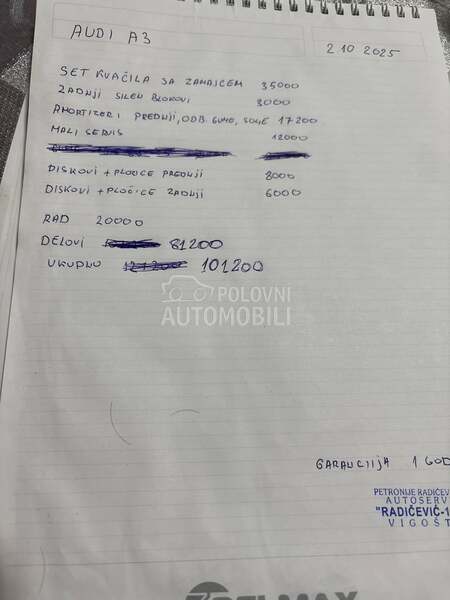 AUDI A3
2.10 2025
SET KVAČILA SA ZAMAJCEM 35000
ZADNJI SILEN BLOKOVI 3000
AMORTIZERI PREDNJI, ODB. GUME, ŠOLJE 17200
MALI SERVIS 12000
DISKOVI + PLOČICE PREDNJI 8000
DISKOVI + PLOČICE ZADNJI 6000
RAD 20000
DELOVI 81200
UKUPNO 101200
POLOVNI
AUTOMOBILI
GARANCIJA 1 GOD
PETRONIJE RADIČEV
AUTOSERV
"RADIČEVIĆ-1
VIGOŠT